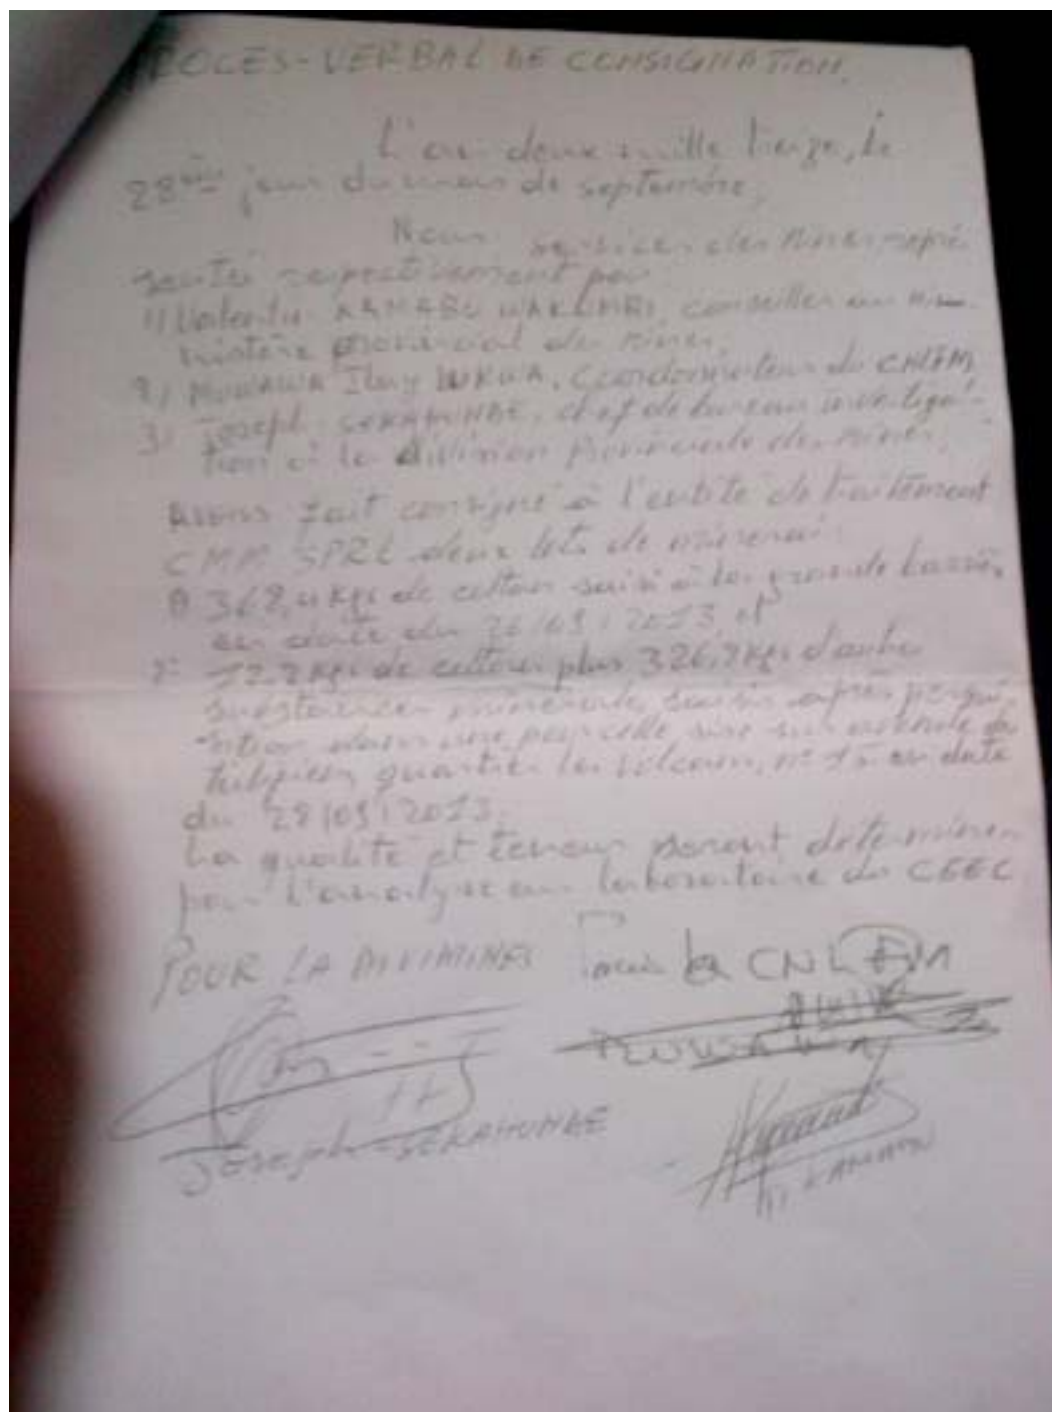 OCES-VERBAL DE CONSIGNATION.
L'an deux mille treize, le
28ème jour du mois de septembre,
Nous services des Mines repré
sentés respectivement par
1) Valentin WAKUMBI, conseiller au Mi-
nistère provincial des Mines,
2) MUWAWA, Coordonnateur du CNLFM
3) Joseph SEKAMUNDE, chef de bureau investiga-
tion à la division provinciale des Mines,
Avons fait consigné à l'entité de traitement
CMM SPRL deux lots de minerais:
368,4 kgs de coltan saisi à la grande barriè
en date du 26/09/2013 et
12.2 kgs de coltan plus 326,2 kgs d'autre
substances minerales saisis après perqui
sition dans une parcelle sise sur avenue
quartier les volcans, n° en date
du 28/09/2013.
La qualité et teneur seront déterminer
par l'analyse au laboratoire du CEEC
POUR LA DIVIMINES Pour la CNLFM
MUWAWA
Joseph SEKAMUNDE